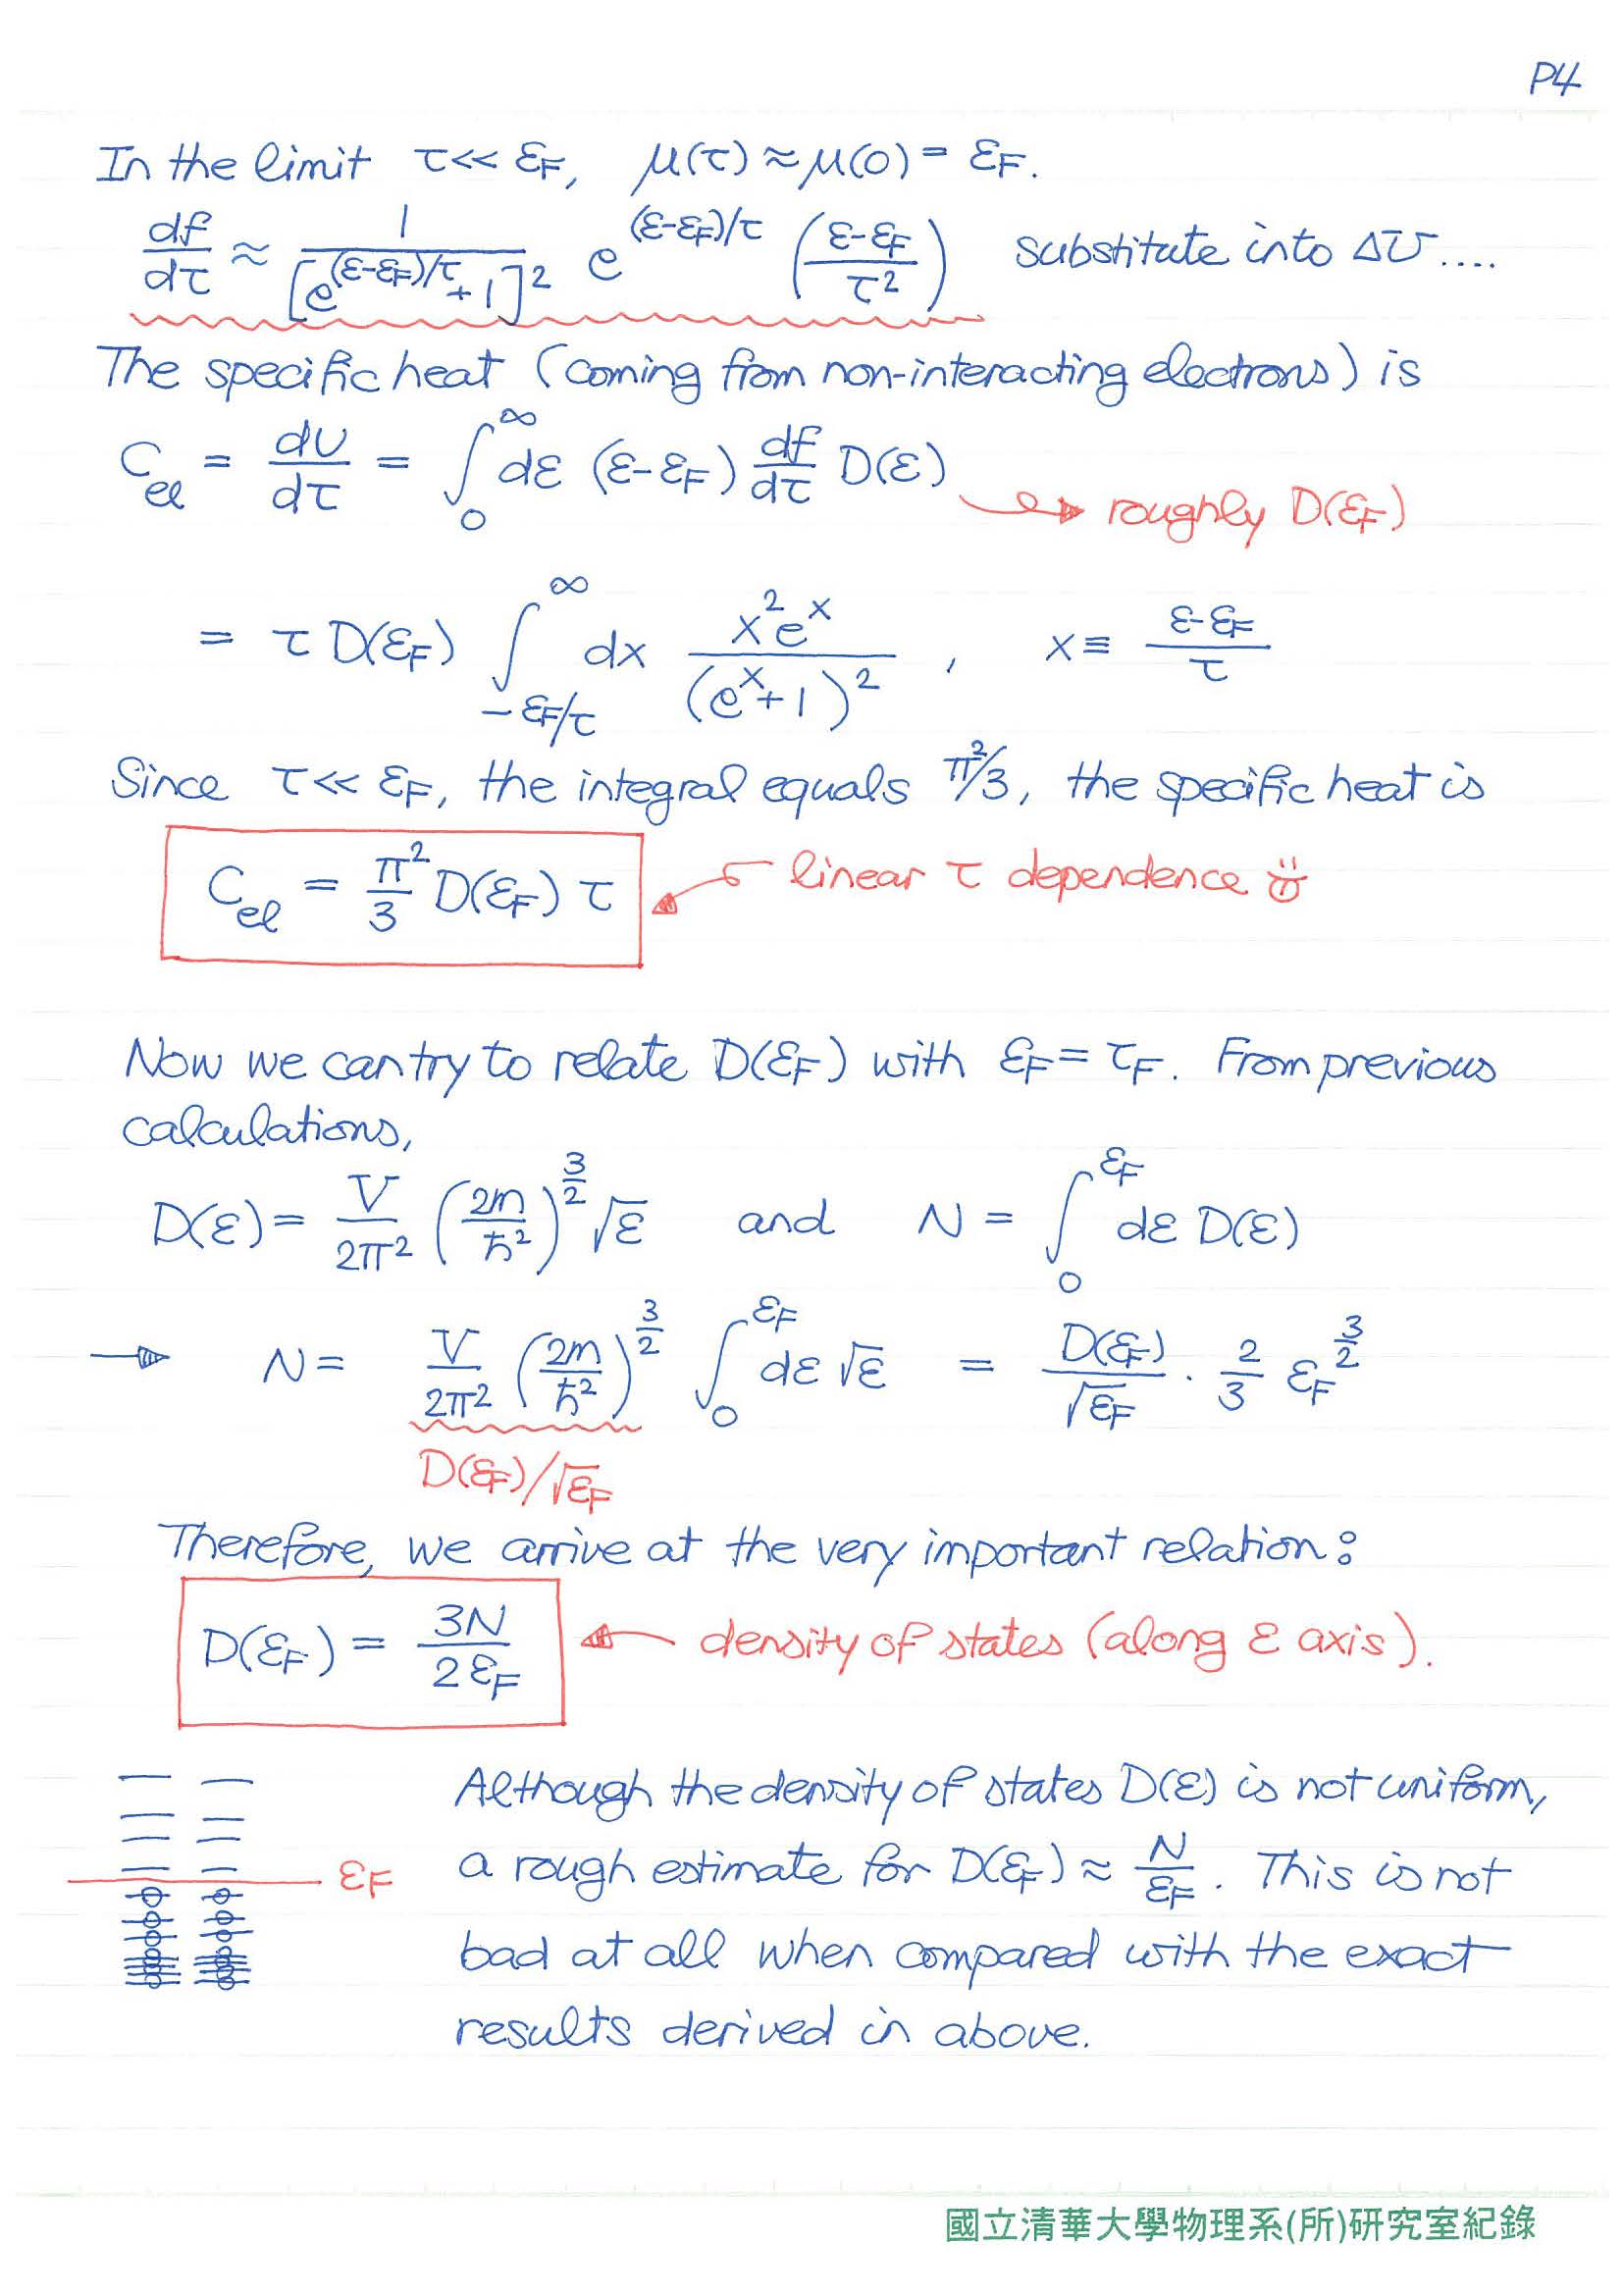 P4
In the limit τ << εF, μ(τ) ≈ μ(0) = εF.
df/dτ ≈ 1/[e^{(ε-εF)/τ} + 1]² e^{(ε-εF)/τ} ((ε-εF)/τ²) substitute into ΔU ....
The specific heat (coming from non-interacting electrons) is
C_el = dU/dτ = ∫₀^∞ dε (ε-εF) df/dτ D(ε)
roughly D(εF)
= τ D(εF) ∫_{-εF/τ}^∞ dx x²e^x/(e^x+1)² , x ≡ (ε-εF)/τ
Since τ << εF, the integral equals π²/3, the specific heat is
C_el = π²/3 D(εF) τ linear τ dependence
Now we can try to relate D(εF) with εF = τF. From previous
calculations,
D(ε) = V/2π² (2m/ħ²)^{3/2} √ε and N = ∫₀^{εF} dε D(ε)
→ N = V/2π² (2m/ħ²)^{3/2} ∫₀^{εF} dε √ε = D(εF)/√εF · 2/3 εF^{3/2}
D(εF)/√εF
Therefore, we arrive at the very important relation:
D(εF) = 3N/2εF density of states (along ε axis).
Although the density of states D(ε) is not uniform,
εF a rough estimate for D(εF) ≈ N/εF. This is not
bad at all when compared with the exact
results derived in above.
國立清華大學物理系(所)研究室紀錄